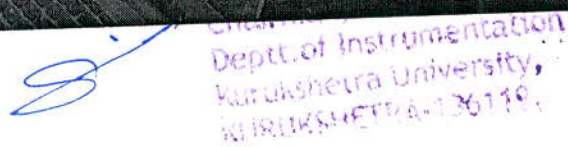 Deptt.of Instrumentation
Kurukshetra University,
KURUKSHETRA-136119.